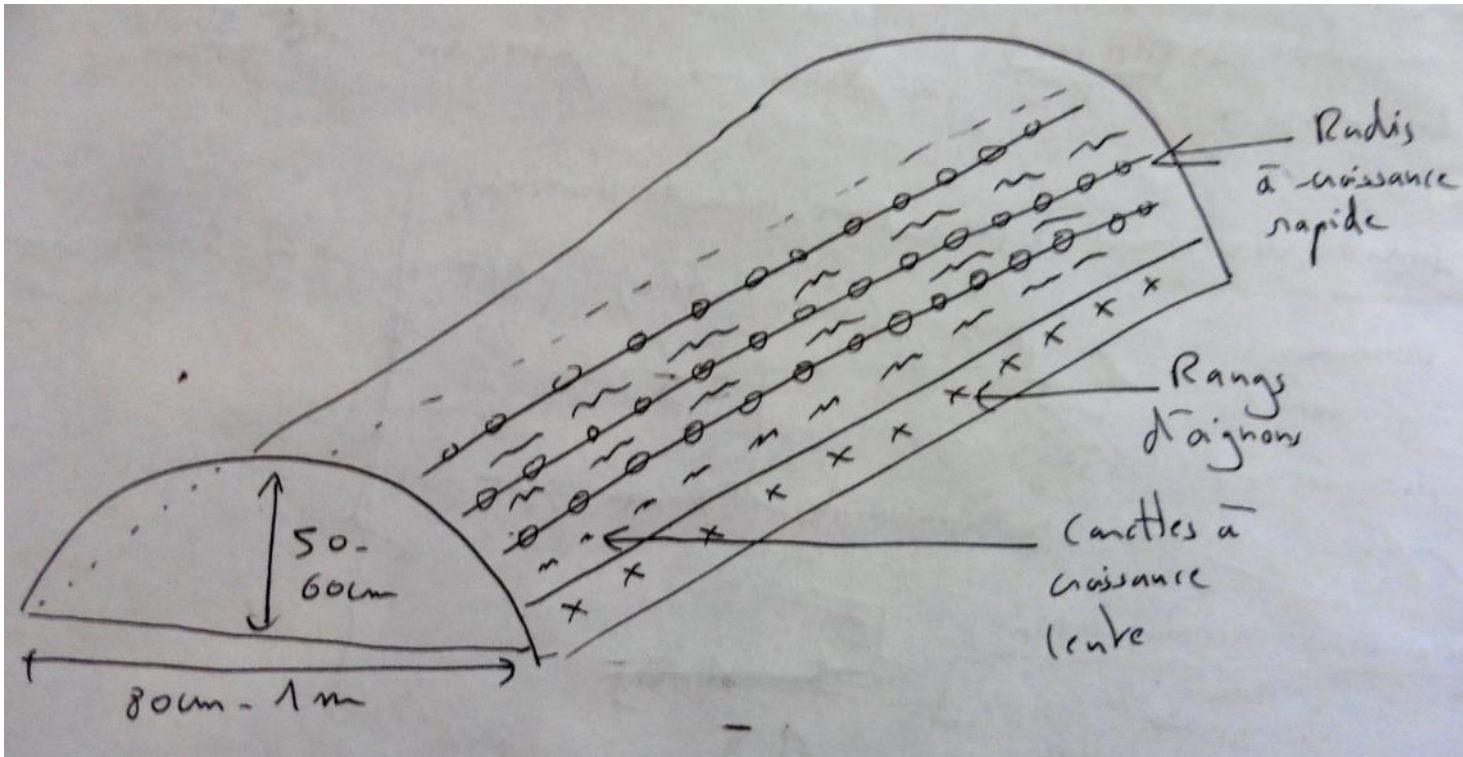 Radis
à croissance
rapide
Rangs
d'oignons
50-
60cm
Carottes à
croissance
lente
80cm - 1m